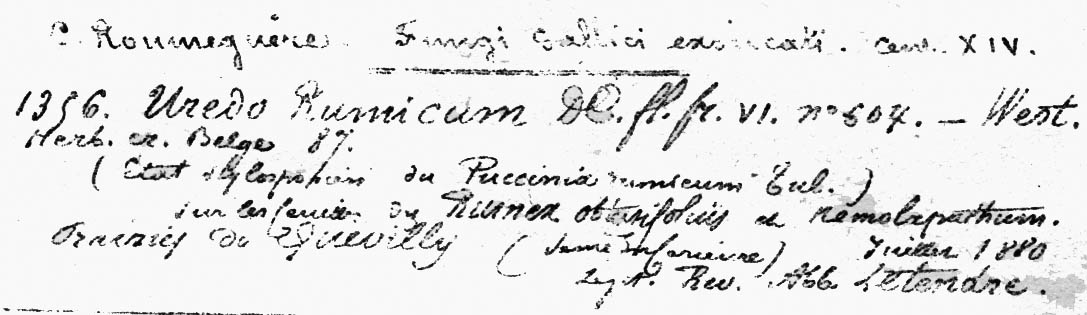 C. Roumeguère. Fungi Gallici exsiccati. Cent. XIV.
1356. Uredo Rumicum DC. fl. fr. VI. nº 604. — West.
Herb. cr. Belge 87.
(Etat stylosporien du Puccinia rumicum Tul.)
Sur les feuilles du Rumex obtusifolius et nemolapathum.
Prairies de Quevilly (Seine Inférieure) Juillet 1880
Legit. Rev. Abb. Letendre.